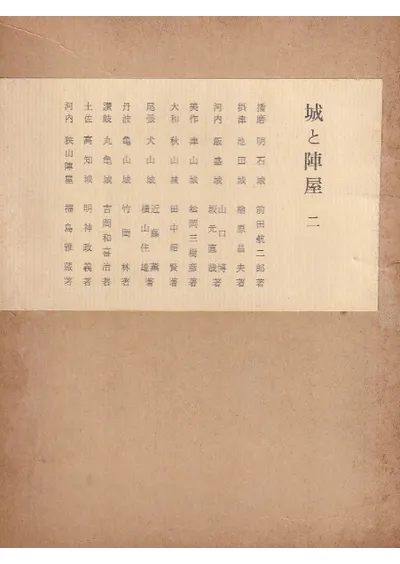 城と陣屋 二
播磨 明石城 前田航二郎著
摂津 池田城 桧原昌夫著
河内 飯盛城 山口博 坂元直哉著
美作 津山城 松岡三樹彦著
大和 秋山城 田中細賢著
尾張 犬山城 近藤薫 横山住雄著
丹波 亀山城 竹岡林著
讃岐 丸亀城 吉岡和喜治著
土佐 高知城 明神政義著
河内 狭山陣屋 福島雅蔵著